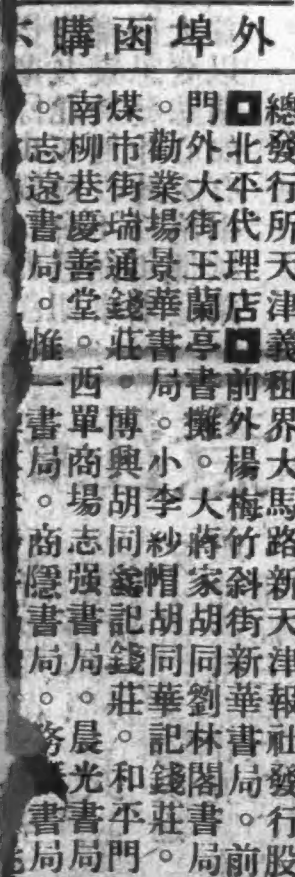 外埠函購
總發行所天津義租界大馬路新天津報社發行股
◘北平代理店◘前外楊梅竹斜街新華書局。前
門外大街王蘭亭書攤。大蔣家胡同劉林閣書局
。勸業場景華書局。小李紗帽胡同華記錢莊。
煤市街瑞通錢莊。博興胡同鑫記錢莊。和平門
南柳巷慶善堂。西單商場志强書局。晨光書局
。志遠書局。惟一書局。商隱書局。書局